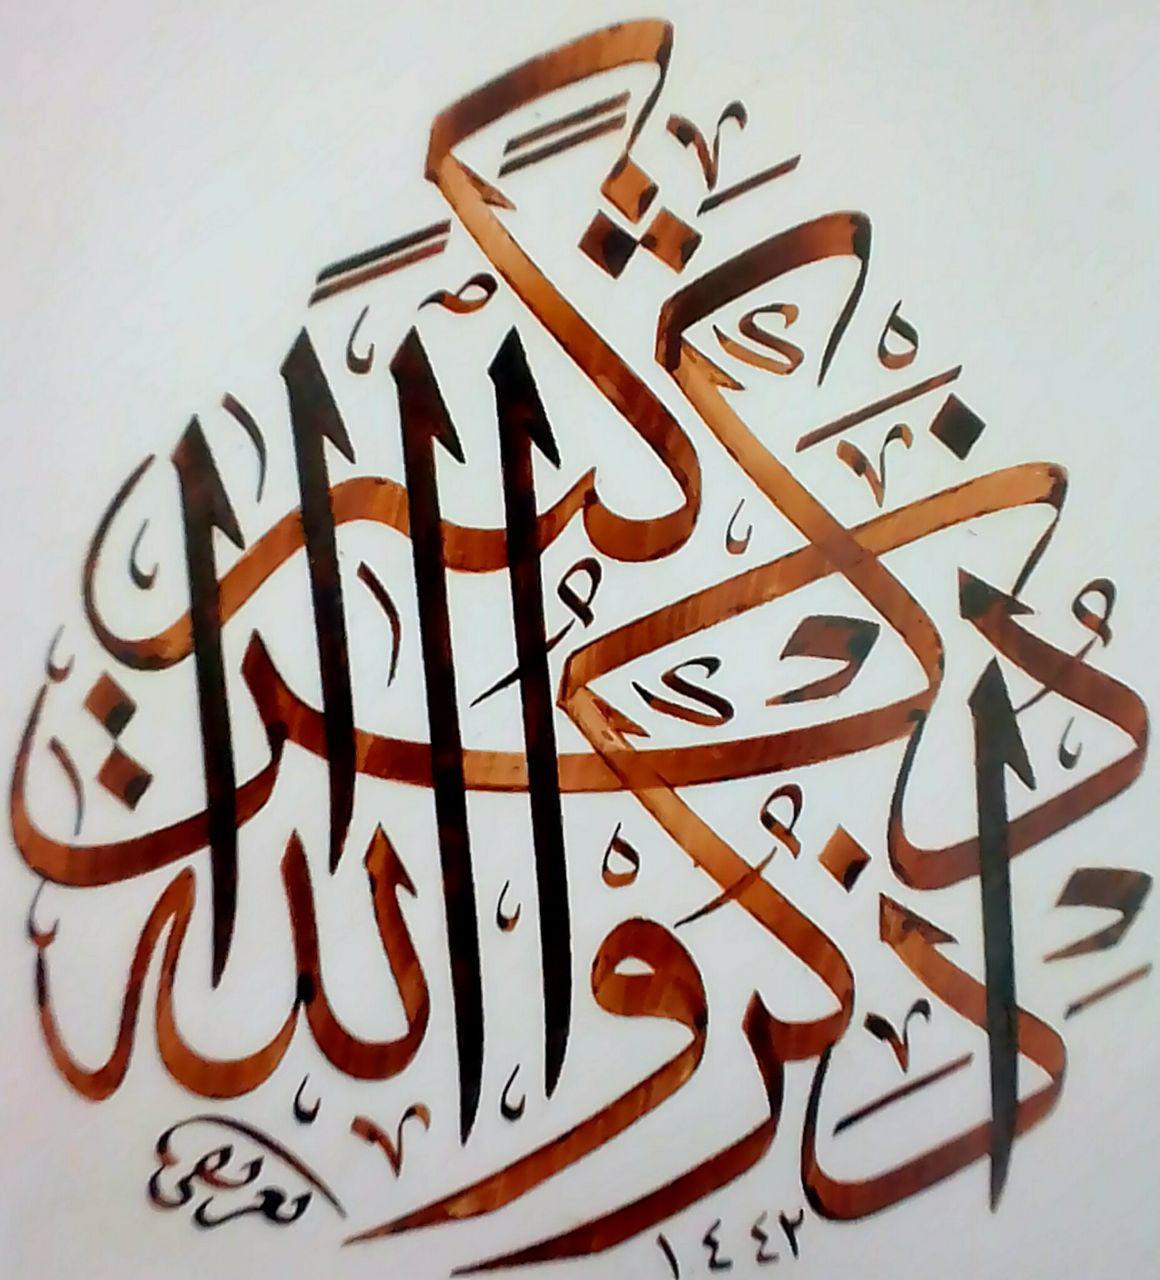 اذكروا الله ذكرا كثيرا
١٤٤٢